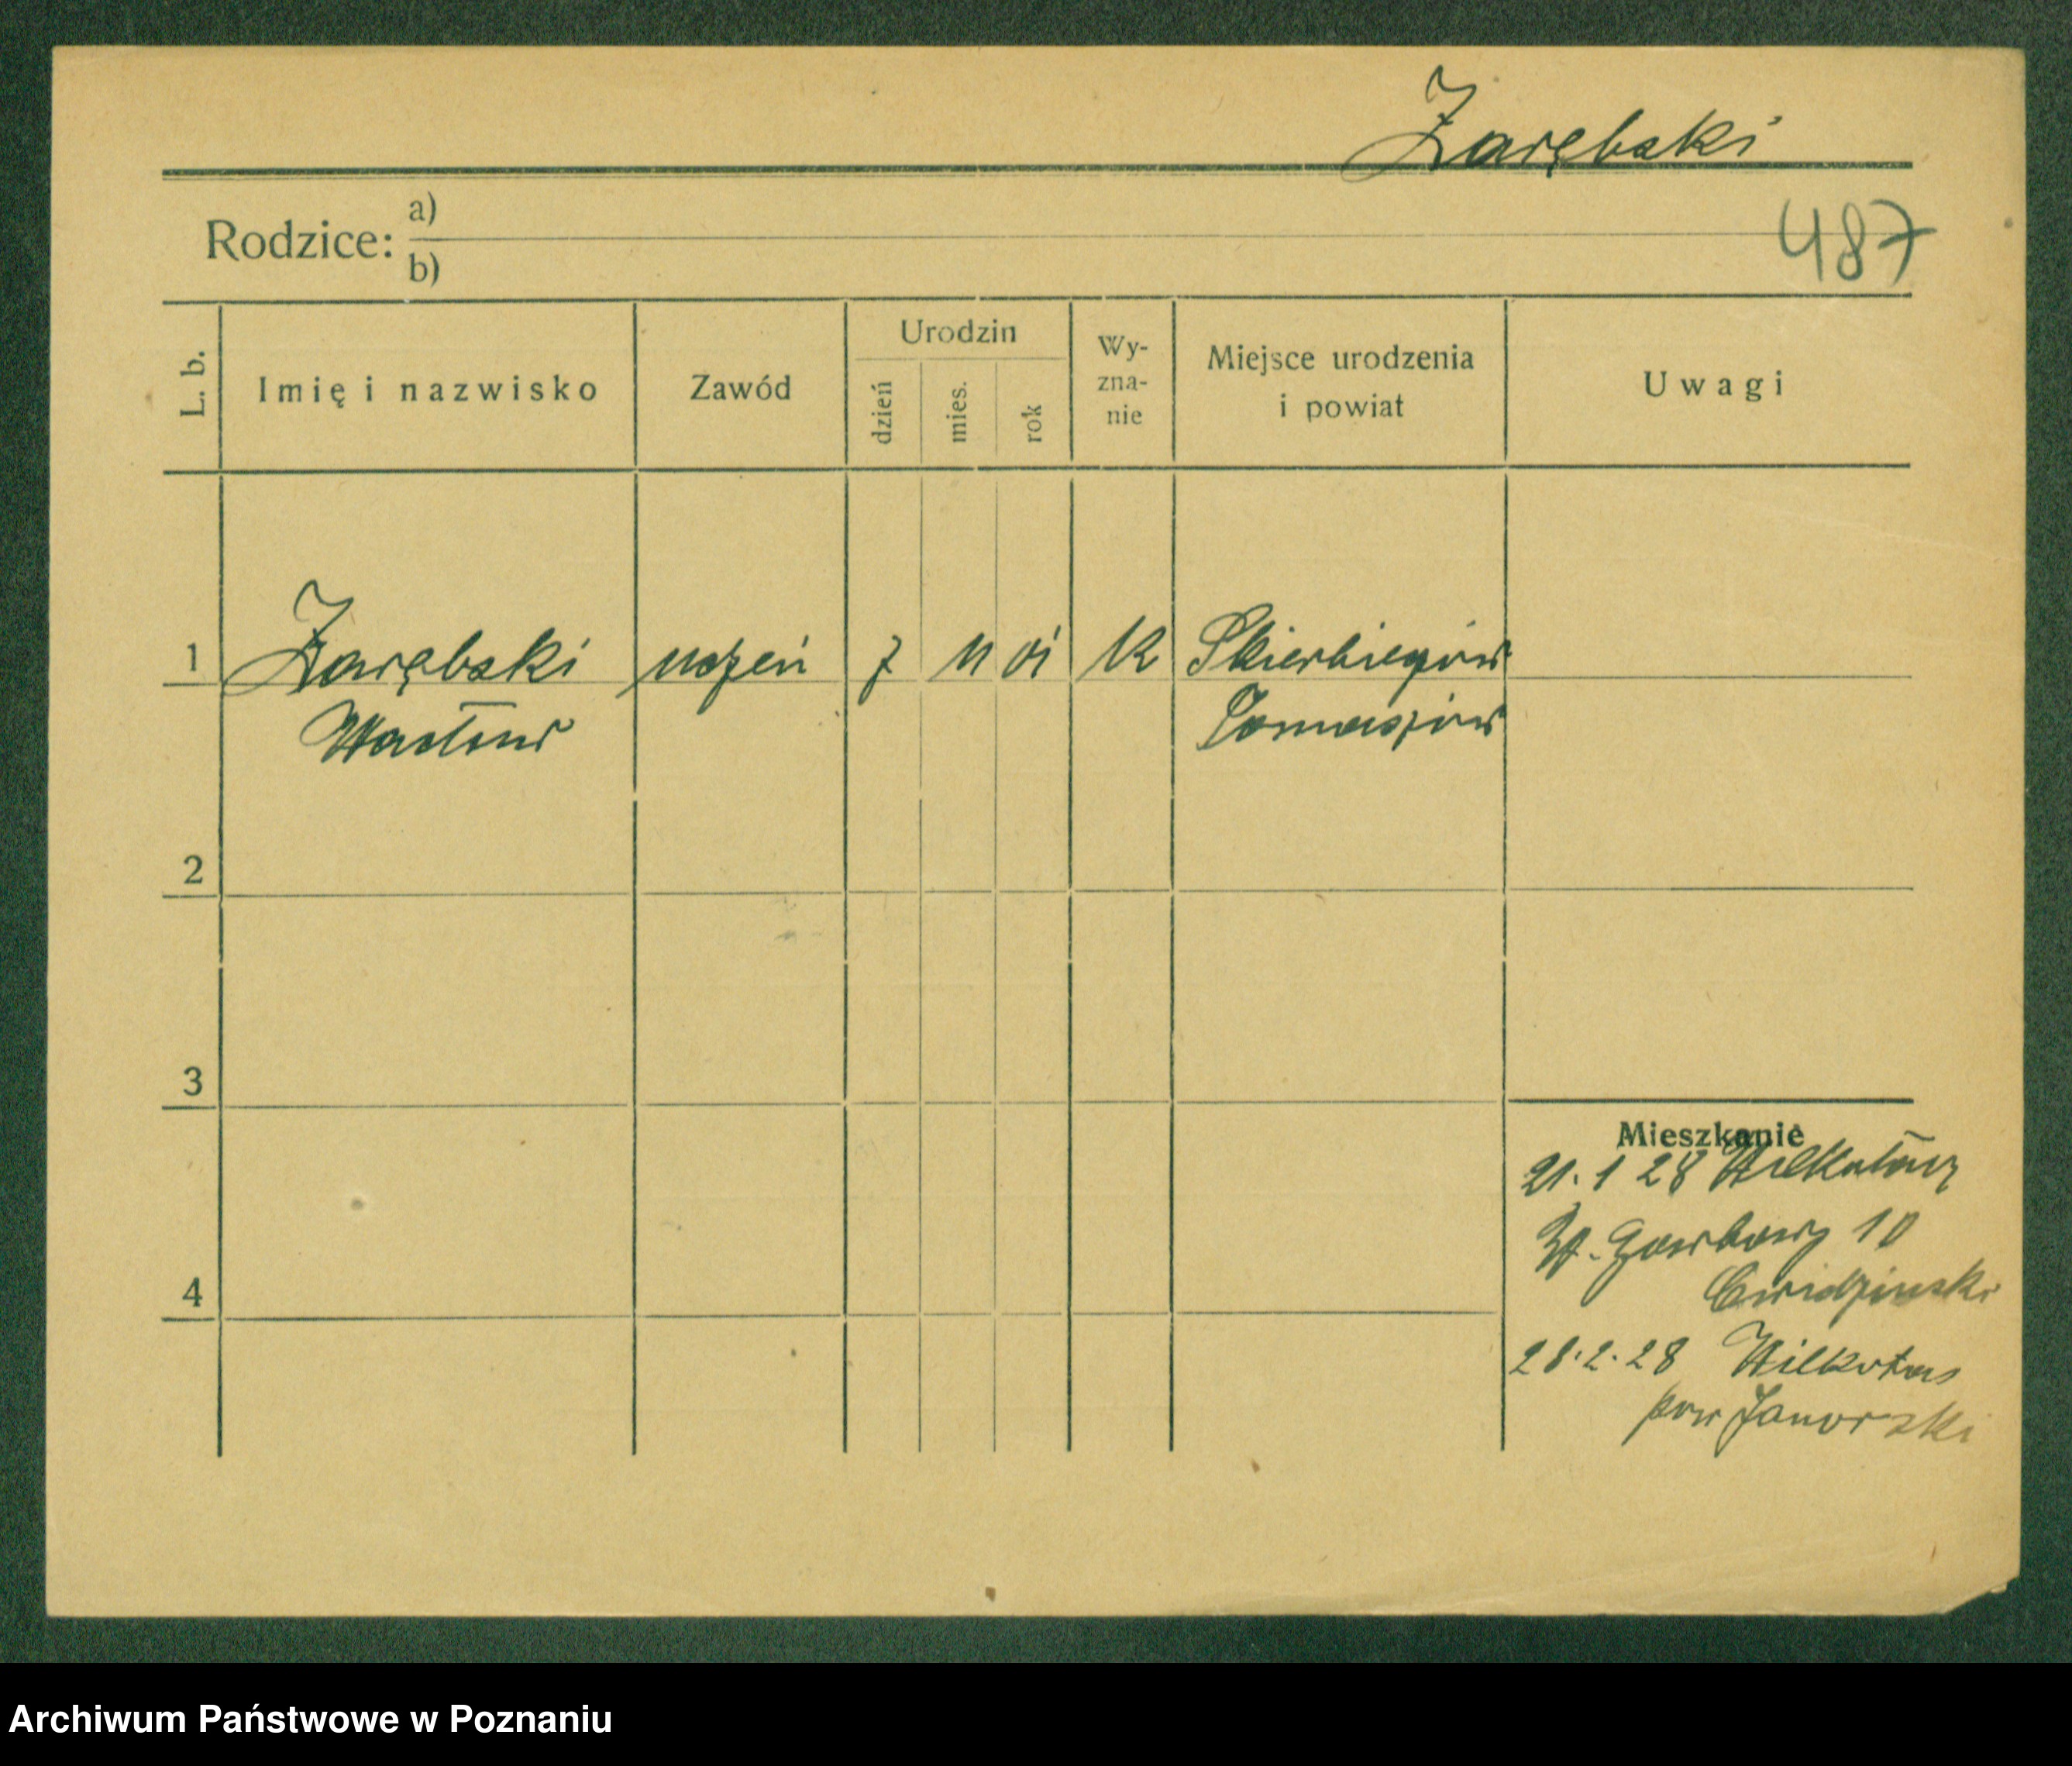 Zarębski
487
Rodzice: a)
b)
L. b. Imię i nazwisko Zawód Urodzin dzień mies. rok Wy-zna-nie Miejsce urodzenia i powiat Uwagi
1 Zarębski uczeń 7 11 01 k Skierbieszów
Wacław Tomaszów
2
3
Mieszkanie
21. 1 28
W. Garbary 10
Cwidzinski
4
28.2.28 Wilkołas
pow Janowski
Archiwum Państwowe w Poznaniu